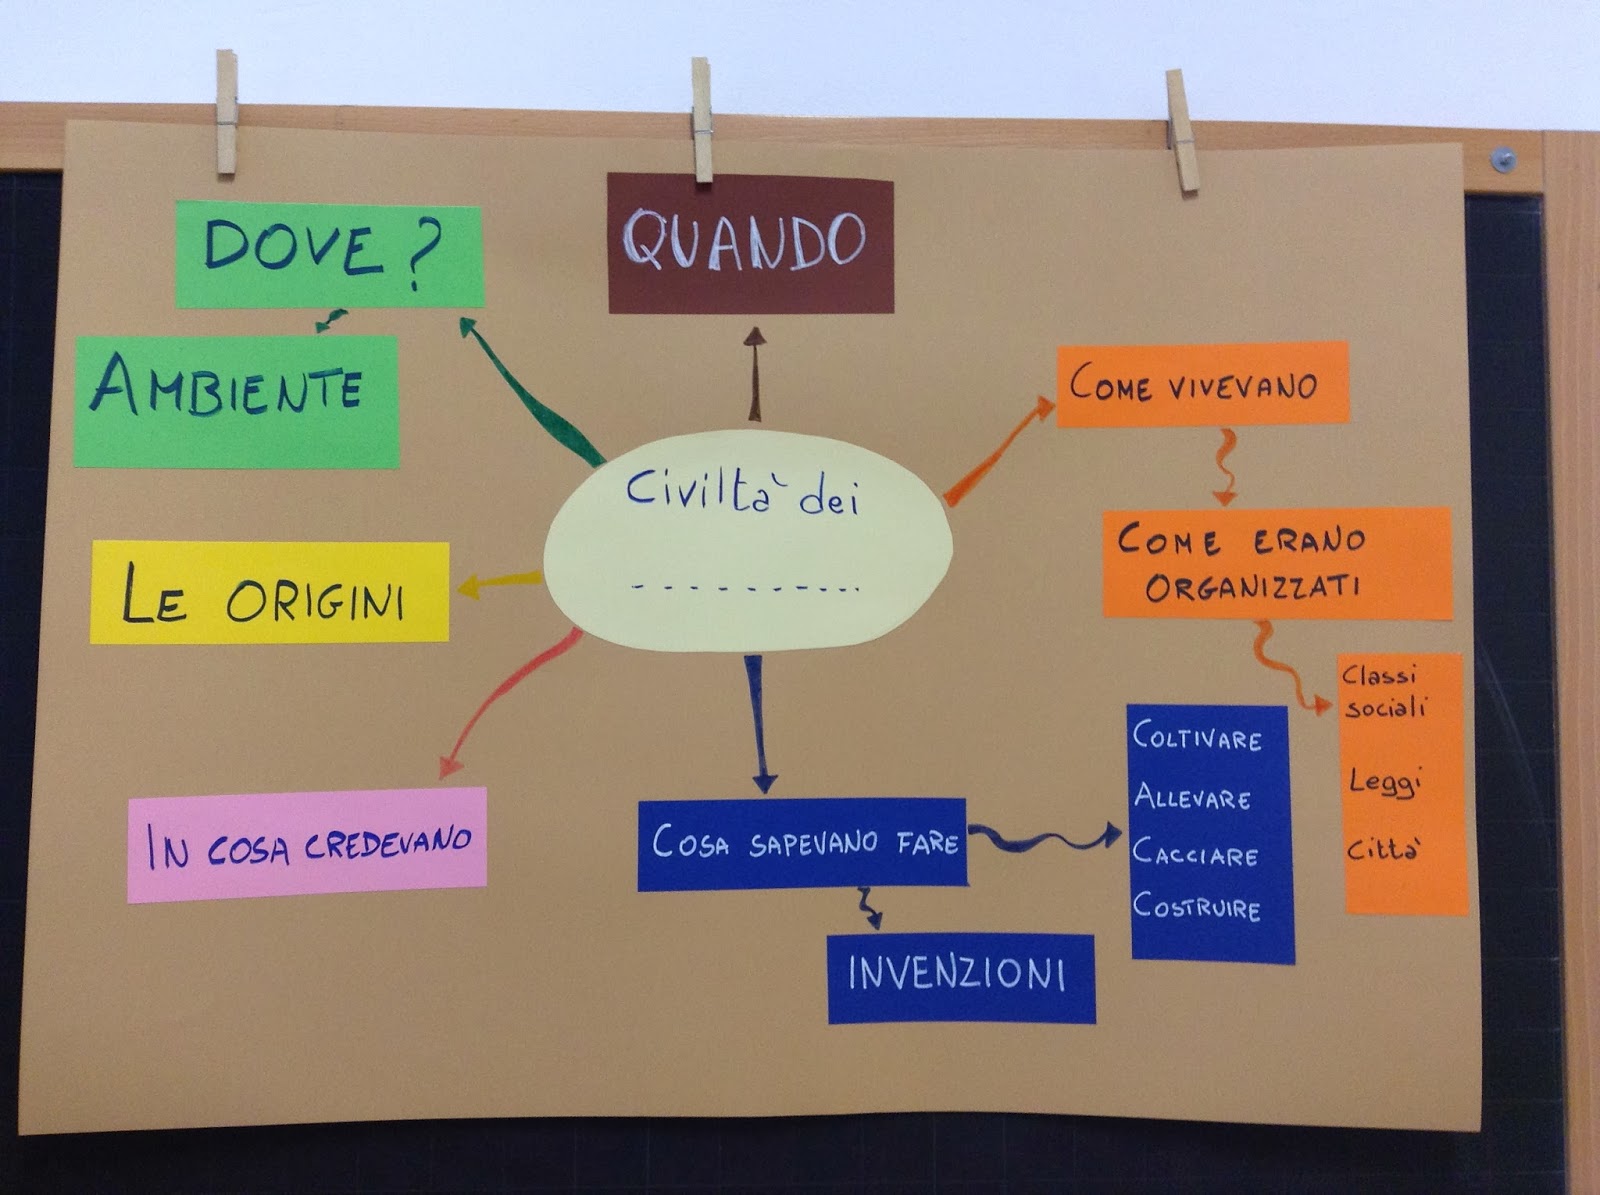 DOVE ?
QUANDO
AMBIENTE
COME VIVEVANO
Civiltà dei
- - - - - - - - - -
COME ERANO
ORGANIZZATI
LE ORIGINI
Classi
sociali
Leggi
Città
IN COSA CREDEVANO
COSA SAPEVANO FARE
COLTIVARE
ALLEVARE
CACCIARE
COSTRUIRE
INVENZIONI